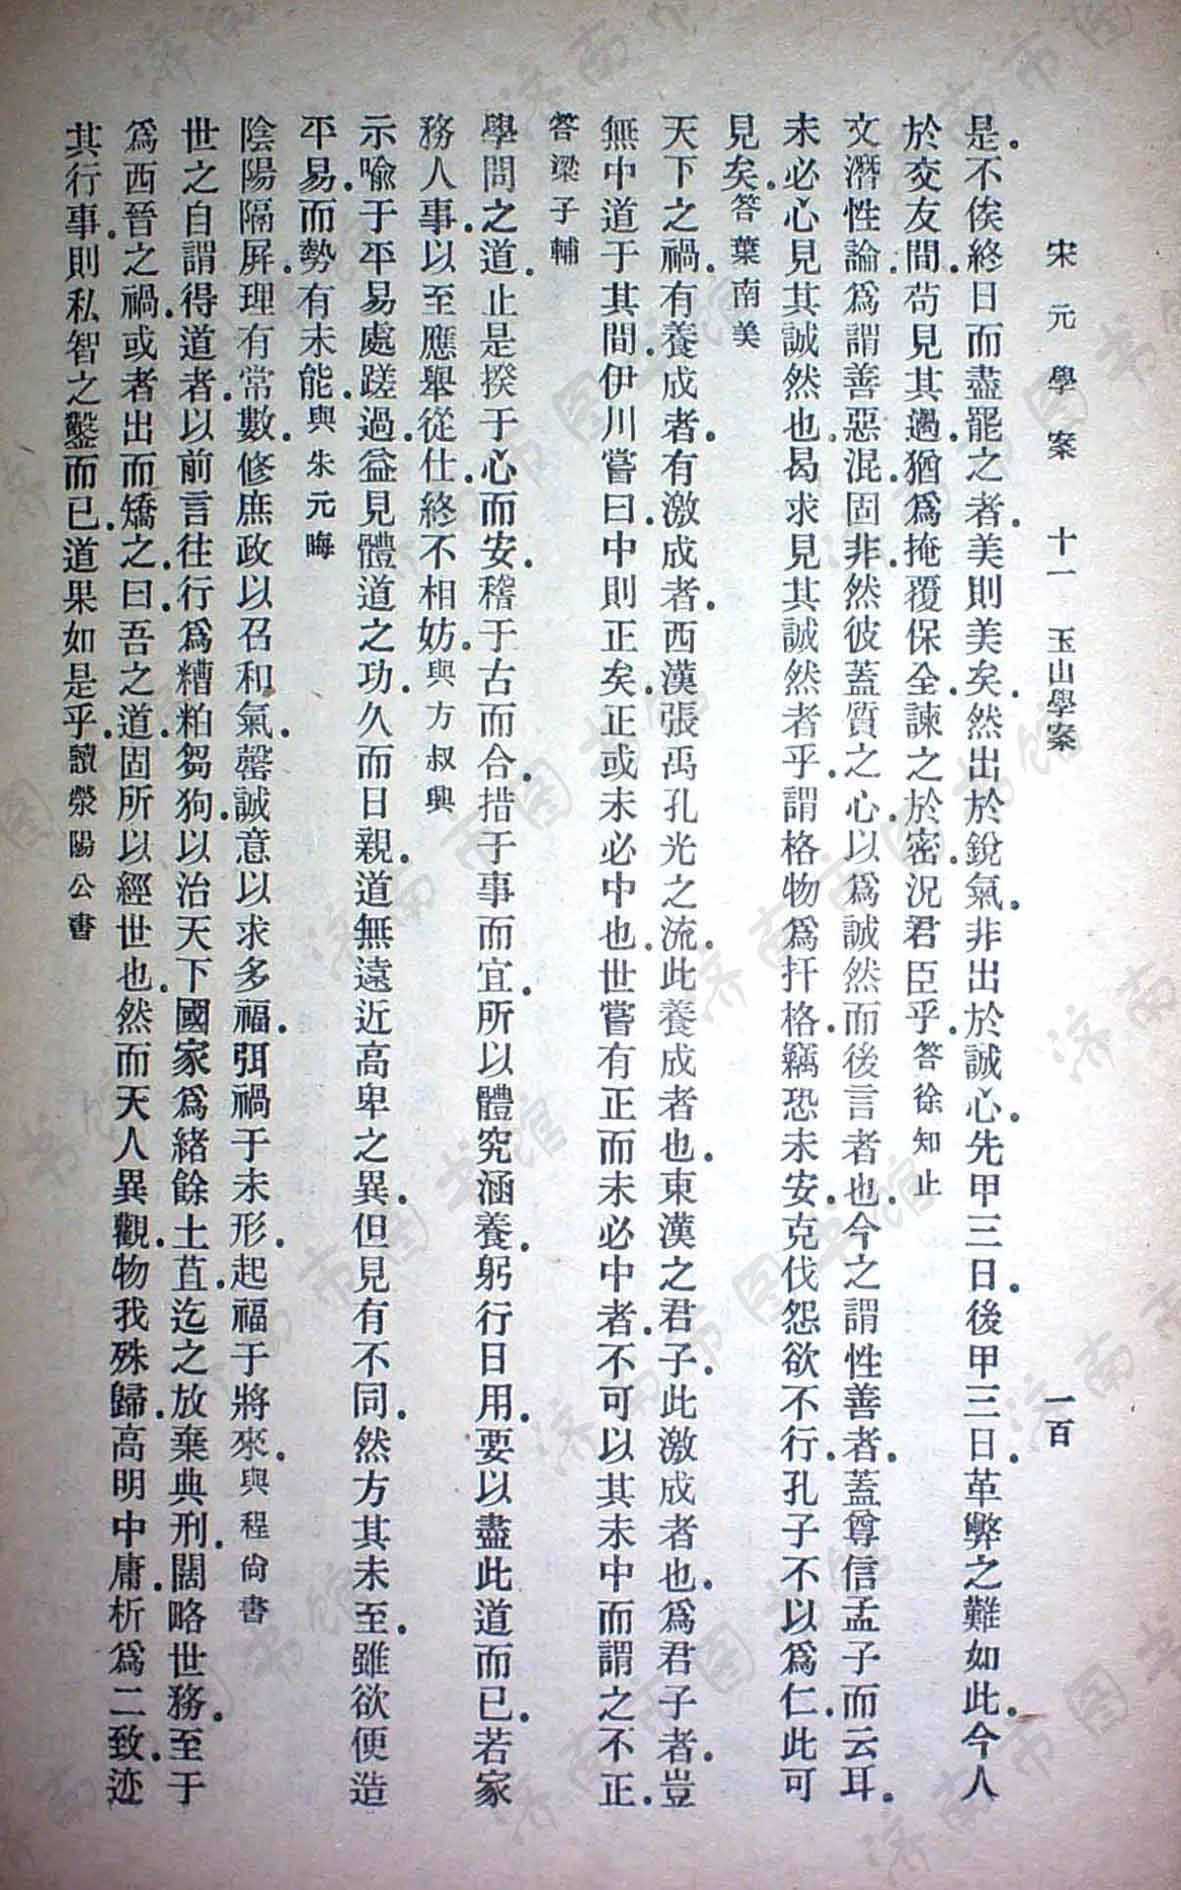 宋元學案　十一　玉山學案　一百
是。不俟終日而盡罷之者。美則美矣。然出於銳氣。非出於誠心。先甲三日。後甲三日。革弊之難如此。今人
於交友間。苟見其過。猶爲掩覆保全。諫之於密。況君臣乎。答徐知止
文潛性論。爲謂善惡混。固非。然彼蓋質之心。以爲誠然而後言者也。今之謂性善者。蓋尊信孟子而云耳。
未必心見其誠然也。曷求見其誠然者乎。謂格物爲扞格。竊恐未安。克伐怨欲不行。孔子不以爲仁。此可
見矣。答葉南美
天下之禍。有養成者。有激成者。西漢張禹孔光之流。此養成者也。東漢之君子。此激成者也。爲君子者。豈
無中道于其間。伊川嘗曰。中則正矣。正或未必中也。世嘗有正而未必中者。不可以其未中而謂之不正。
答梁子輔
學問之道。止是揆于心而安。稽于古而合。措于事而宜。所以體究涵養。躬行日用。要以盡此道而已。若家
務人事。以至應舉從仕。終不相妨。與方叔興
示喩于平易處蹉過。益見體道之功。久而日親。道無遠近高卑之異。但見有不同。然方其未至。雖欲便造
平易。而勢有未能。與朱元晦
陰陽隔屏。理有常數。修庶政以召和氣。罄誠意以求多福。弭禍于未形。起福于將來。與程尙書
世之自謂得道者。以前言往行爲糟粕芻狗。以治天下國家爲緒餘土苴。迄之放棄典刑。闊略世務。至于
爲西晉之禍。或者出而矯之。曰。吾之道。固所以經世也。然而天人異觀。物我殊歸。高明中庸。析爲二致。迹
其行事。則私智之鑿而已。道果如是乎。讀滎陽公書